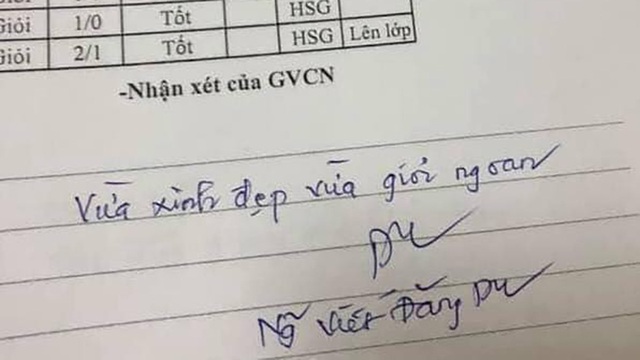 Giỏi Tốt HSG
Giỏi 1/0 Tốt HSG
Giỏi 2/1 Tốt HSG Lên lớp
-Nhận xét của GVCN
Vừa xinh đẹp vừa giỏi ngoan
Du
Ng Viết Đăng Du